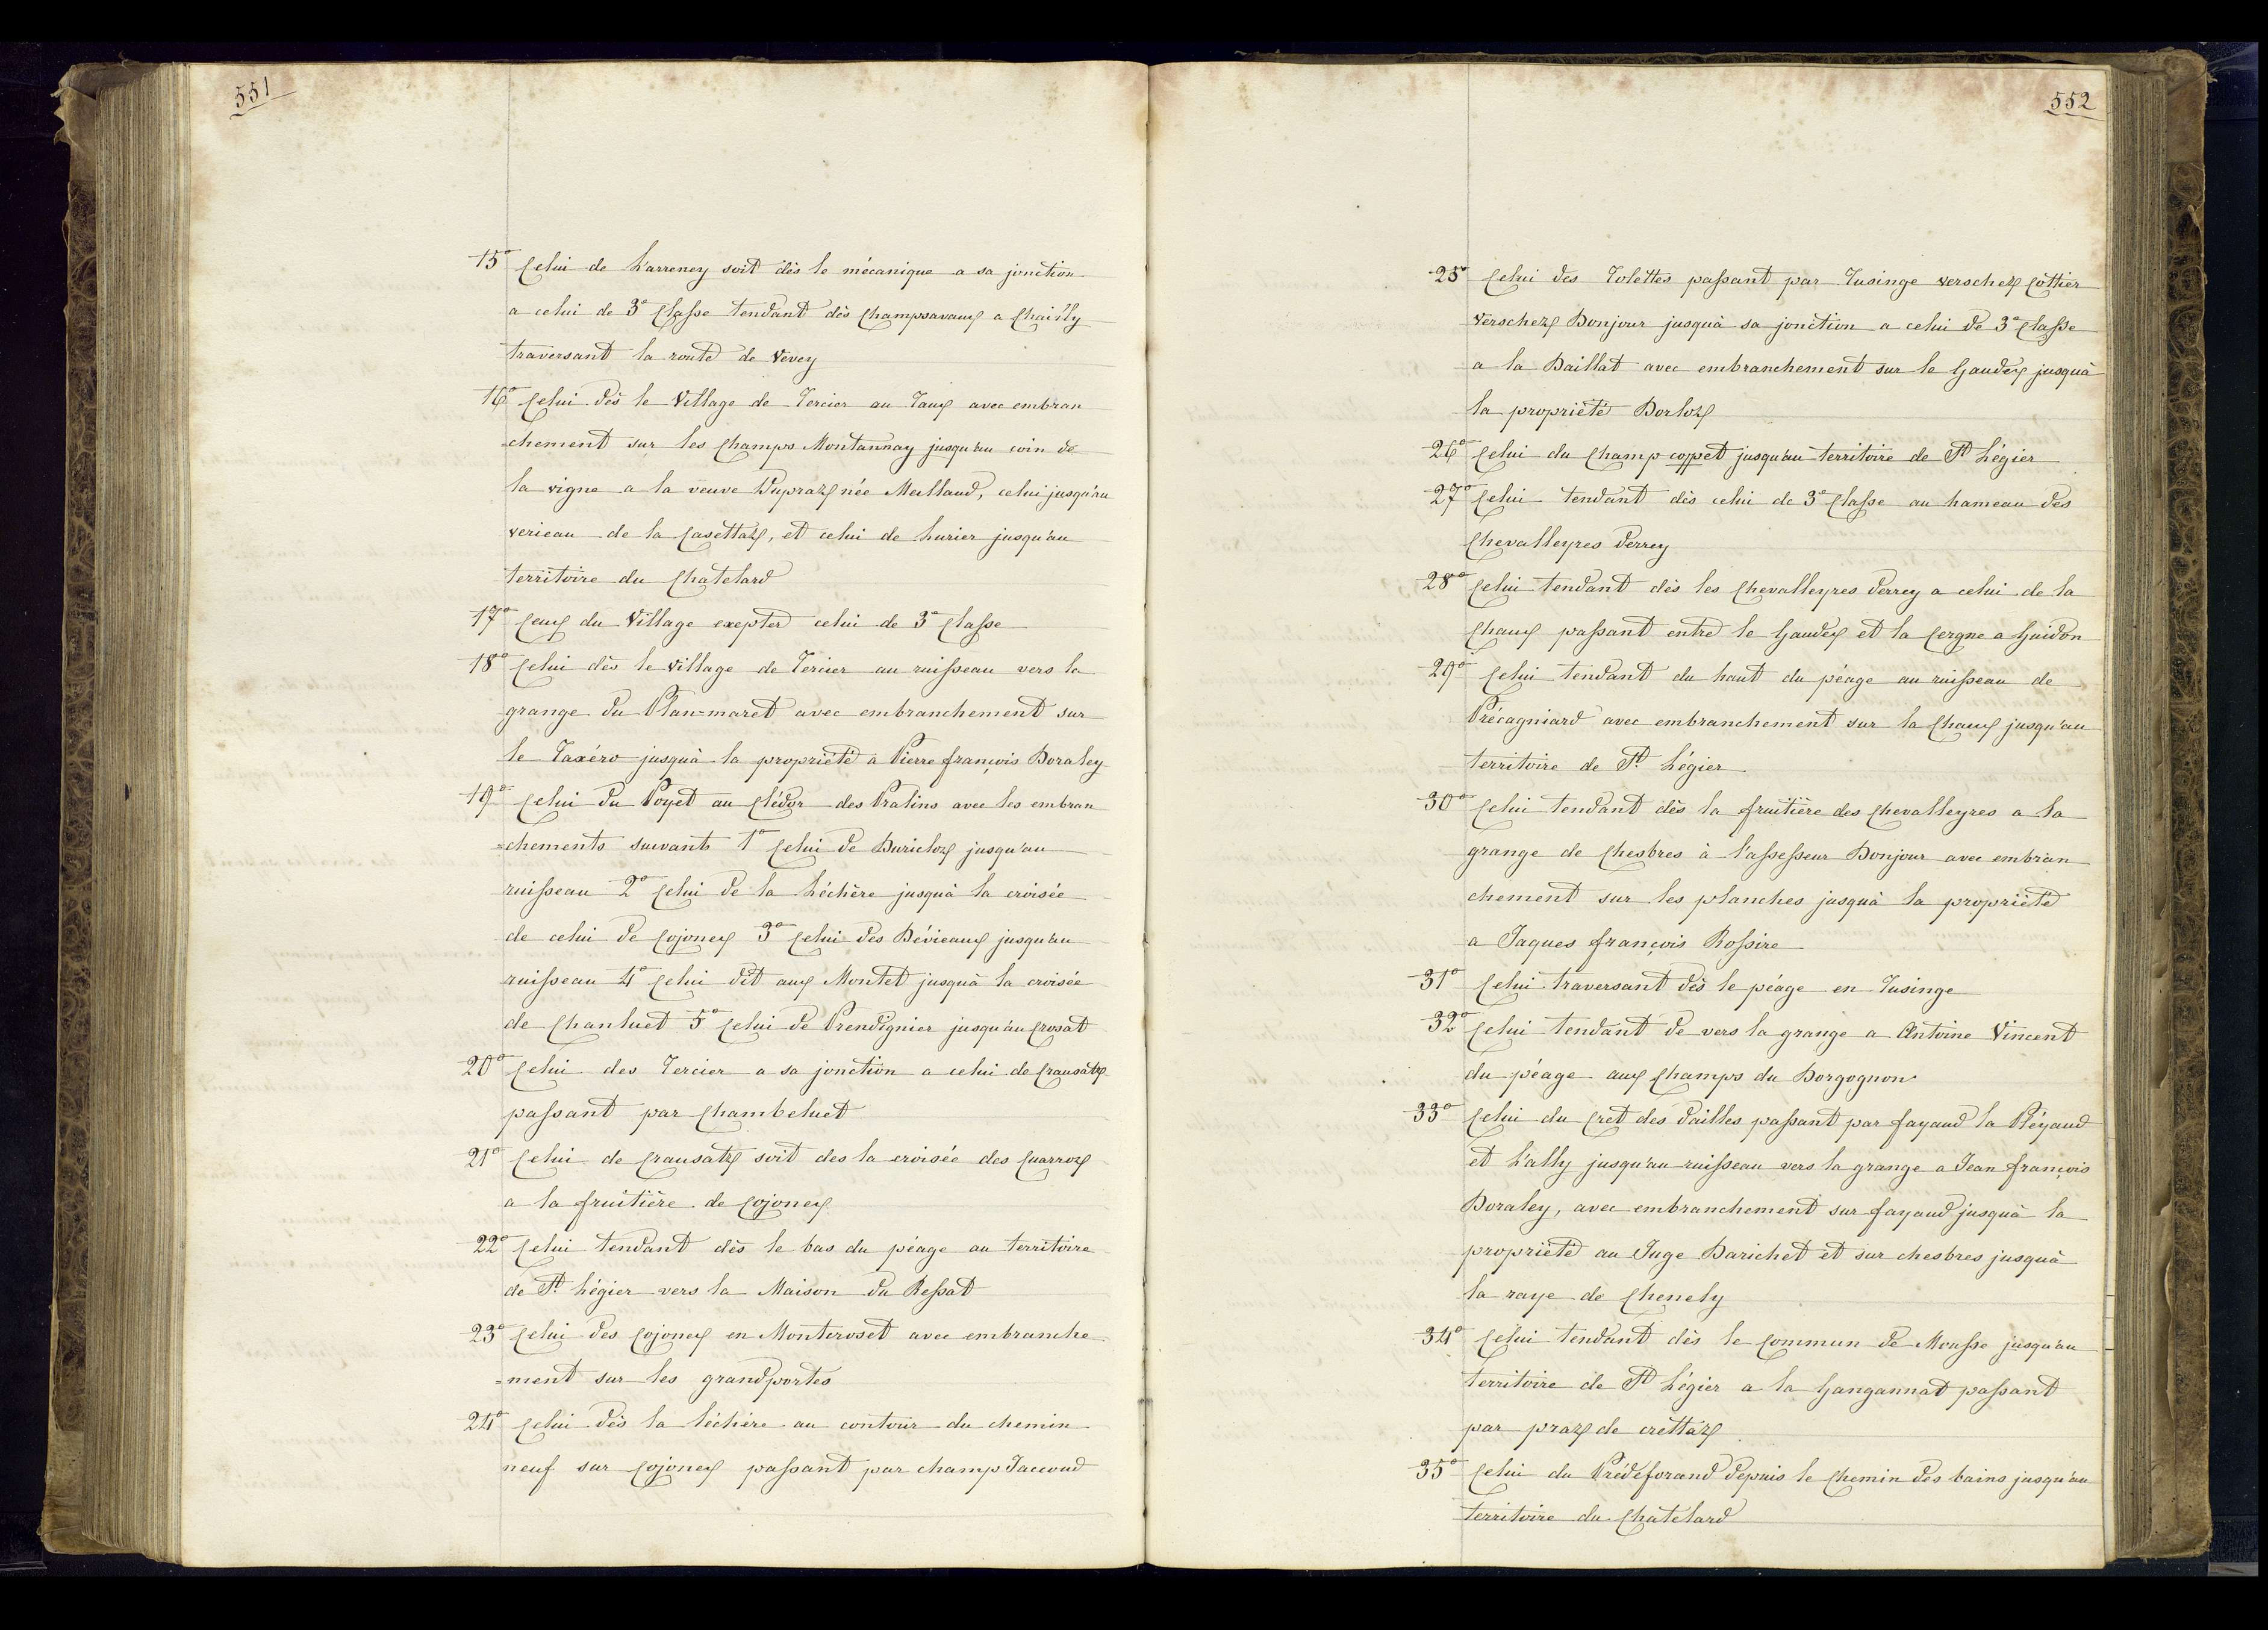 551
15° Celui de Larreney soit dès le mécanique a sa jonction
a celui de 3e Classe tendant dès Champsavaux a Chailly
traversant la route de Vevey
16° Celui dès le Village de Tercier au Taux avec embran
=chement sur les Champs Montannay jusqu'au coin de
la vigne a la veuve Dupraz née Meillaud, celui jusqu'au
verieau de la Casettaz, et celui de Lurier jusqu'au
territoire du Chatelard
17° Ceux du Village excepter celui de 3e Classe
18° Celui dès le Village de Tercier au ruisseau vers la
grange du Plan=maret avec embranchement sur
le Taxéro jusquà la propriété à Pierre françois Doraley
19° Celui du Poyet au Clédor des Pralins avec les embran
=chements suivants 1° Celui de Buricloz jusqu'au
ruisseau 2° Celui de la Léchère jusquà la croisée
de celui de Cojonex 3° Celui des Dévieaux jusqu'au
ruisseau 4° Celui dit aux Montet jusquà la croisée
de Chanluet 5° Celui de Prendignier jusqu'au Crosat
20° Celui des Tercier a sa jonction a celui de Crausataz
passant par Chambeluet
21° Celui de Crausataz soit des la croisée des Quarroz
a la fruitière de Cojonex
22° Celui tendant dès le bas du péage au territoire
de St. Légier vers la Maison du Ressat
23° Celui des Cojonex en Monteroset avec embranche
=ment sur les grandportes
24° Celui dès la léchère au contour du chemin
neuf sur Cojonex passant par champ Jaccoud
552
25° Celui des Tolettes passant par Tusinge verschez Cottier
Verschez Bonjour jusquà sa jonction a celui de 3e Classe
a la Baillat avec embranchement sur le Gaudex jusquà
la propriété Borloz
26° Celui du Champ coppet jusqu'au territoire de St Légier
27° Celui tendant dès celui de 3e Classe au hameau des
Chevalleyres derrey
28° Celui tendant dès les Chevalleyres derrey a celui de la
Chaux passant entre le Gaudex et la Cergne a Guidon
29° Celui tendant du haut du péage au ruisseau de
Précagniard avec embranchement sur la Chaux jusqu'au
territoire de St. Légier
30° Celui tendant dès la fruitière des Chevalleyres a la
grange de Chesbres à l'assesseur Bonjour avec embran
chement sur les planches jusquà la propriété
a Jaques françois Rossire
31° Celui traversant dès le péage en Tusinge
32° Celui tendant de vers la grange a Antoine Vincent
du péage aux Champs du Borgognon
33° Celui du Cret des dailles passant par fayaud la Pléyaud
et L'ally jusqu'au ruisseau vers la grange a Jean françois
Doraley, avec embranchement sur fayaud jusquà la
propriété au Juge Barichet et sur chesbres jusquà
la raye de Chenely
34° Celui tendant dès le Commun de Mousse jusqu'au
territoire de St Légier a la Gangannat passant
par praz de crettaz
35° Celui du Prédeforand depuis le Chemin des bains jusqu'au
territoire du Chatelard